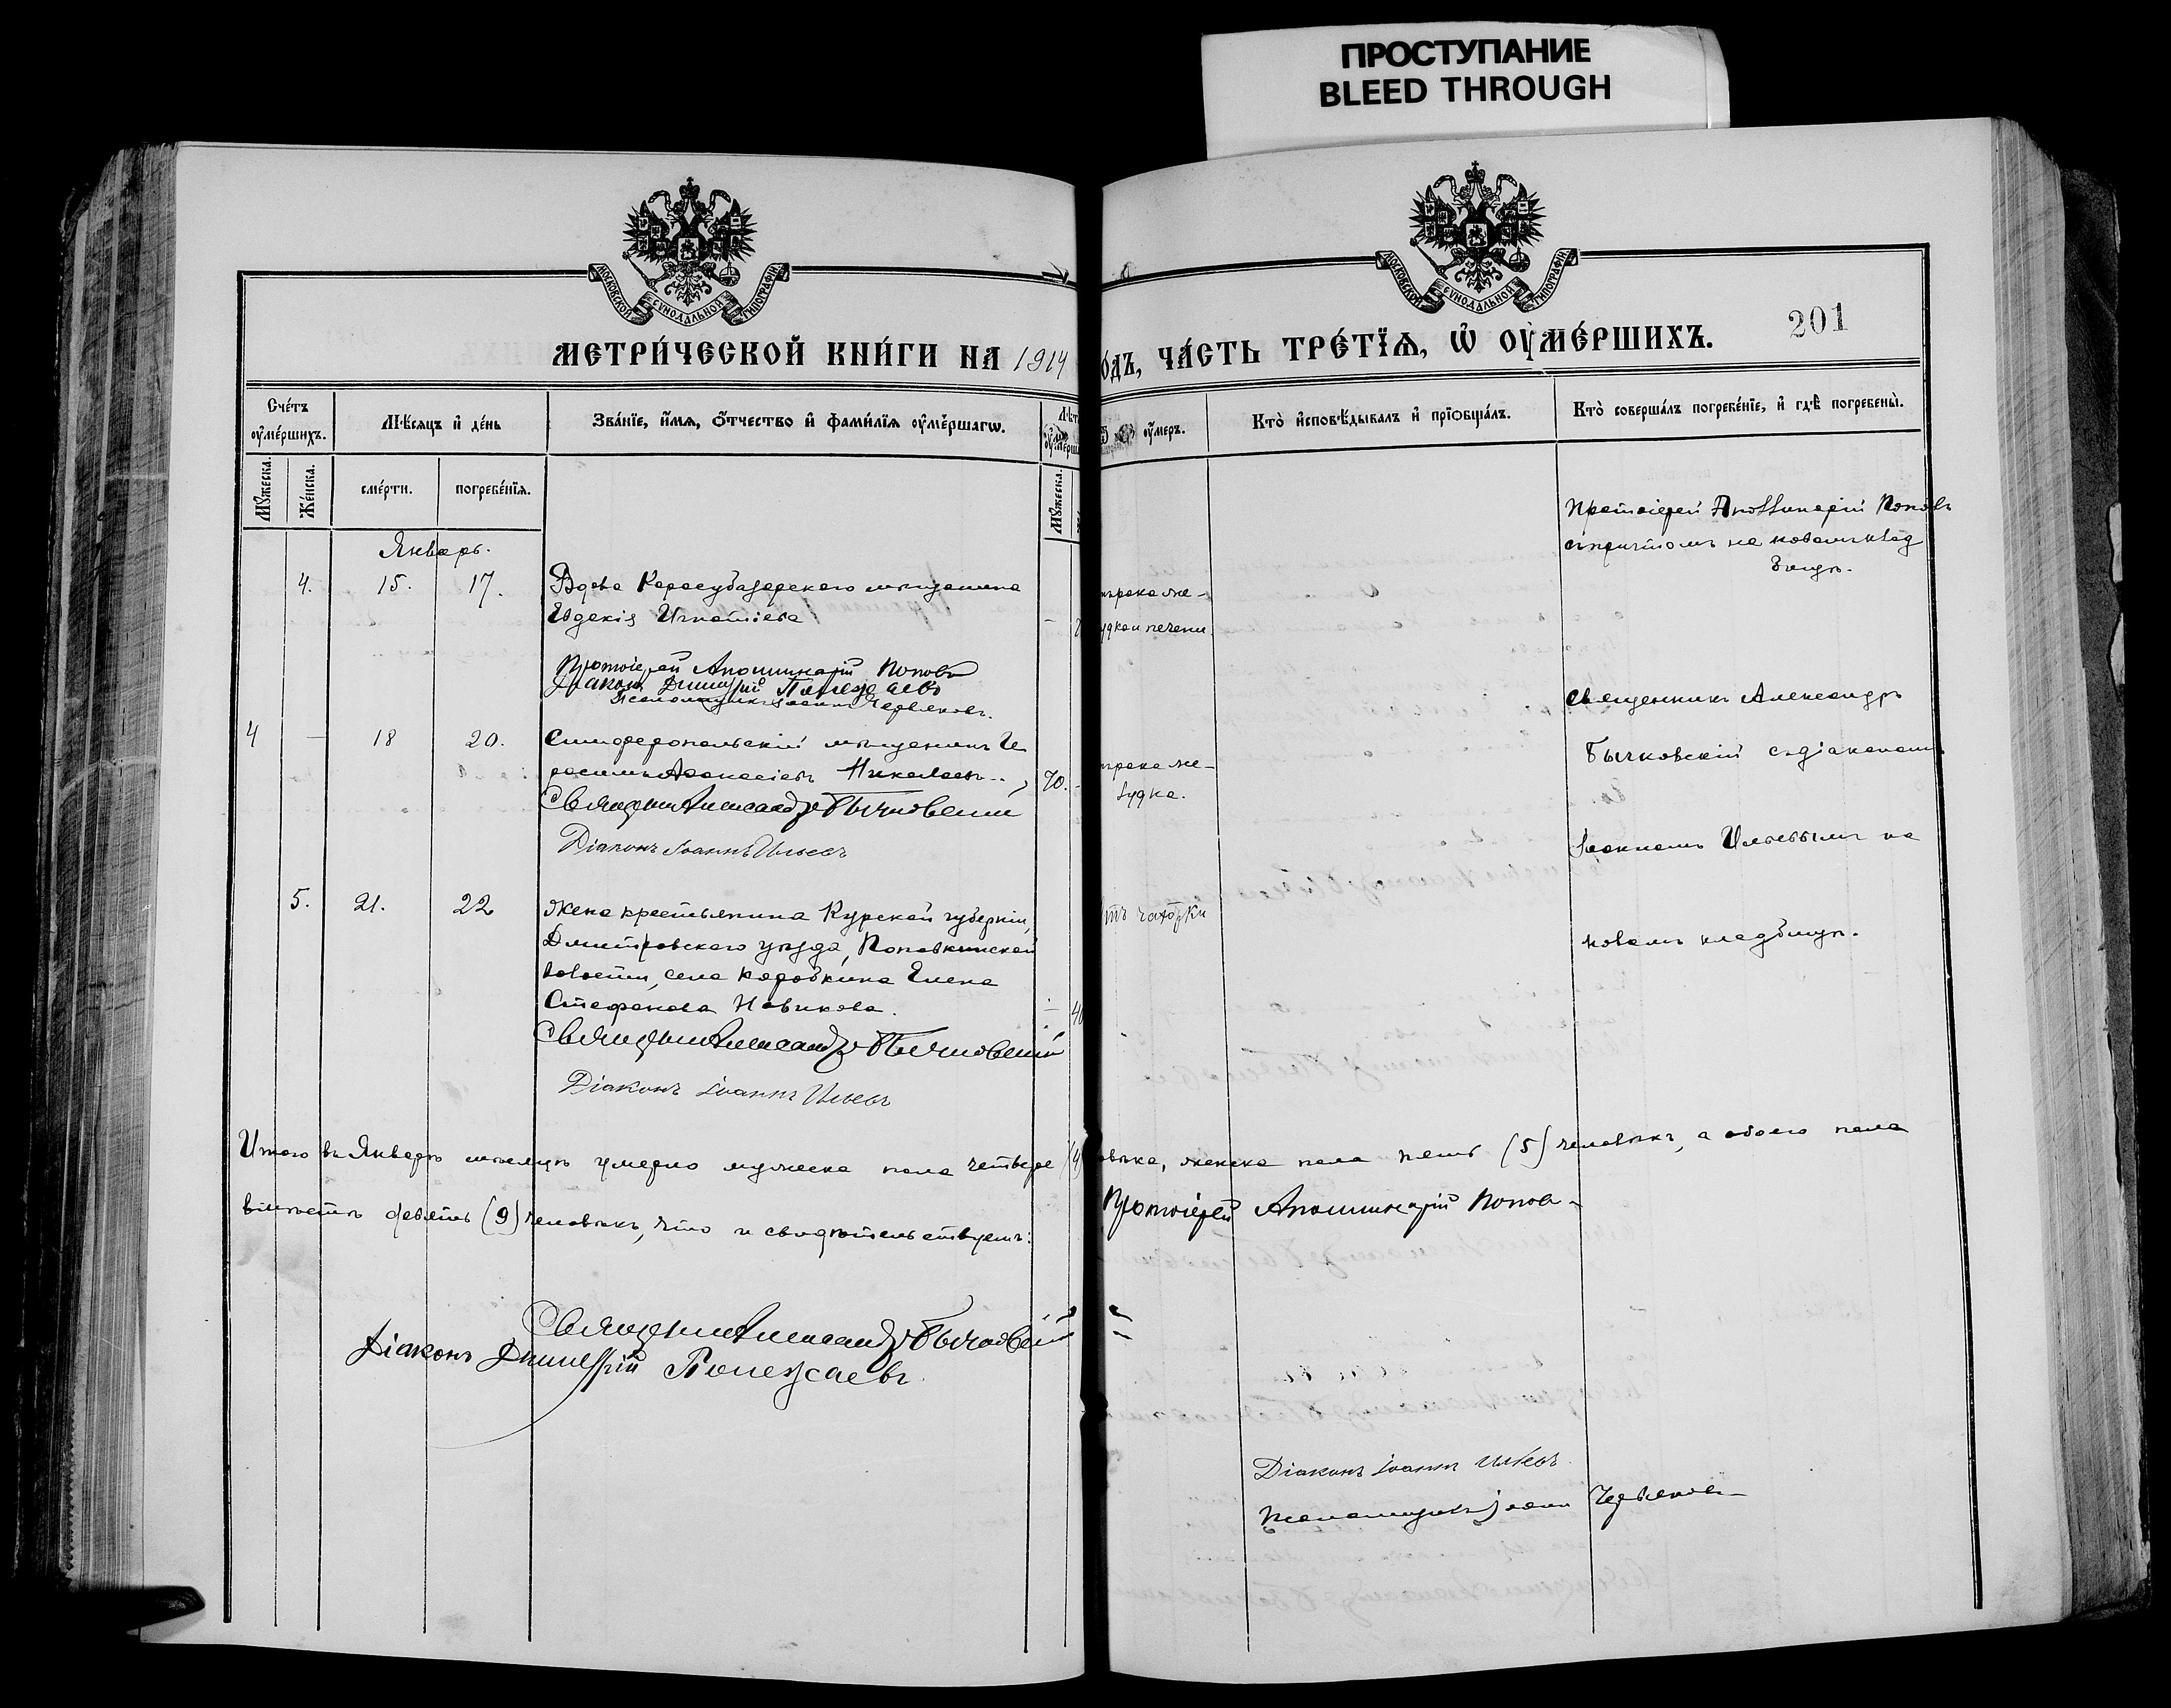 ПРОСТУПАНИЕ
BLEED THROUGH
МОСКОВСКОЙ СѴНОДАЛЬНОЙ ТИПОГРАФІИ
МОСКОВСКОЙ СѴНОДАЛЬНОЙ ТИПОГРАФІИ
МЕТРИ́ЧЕСКОЙ КНИ́ГИ НА 1914
ОДЪ, ЧА́СТЬ ТРЕ́ТЇѦ, Ѿ ОУМЕ́РШИХЪ.
201
Сче́тъ оуме́ршихъ.
Мѣ́сяцъ и де́нь
Зва́нїе, и́мѧ, о́тчество и фами́лїѧ оуме́ршагѡ.
оумеръ.
Кто̀ исповѣ́дывалъ и прїобща́лъ.
Кто̀ соверша́лъ погребе́нїе, и гдѣ̀ погребены̀.
Мꙋжеска.
Же́нска.
сме́рти.
погребе́нїѧ.
Мꙋжеска.
Январь.
4. 15. 17.
Вдова Карасубазарского мѣщанина
Евдокія Игнатіева
рака же-
удка и печени.
Протоіерей Аполлинарій Поповъ
съ причтомъ на новомъ клад
бищѣ.
Протоіерей Аполлинарій Поповъ
Діаконъ Димитрій Полежаевъ
Псаломщикъ Іоаннъ Червяковъ.
4 — 18 20.
Симферопольскій мѣщанинъ Ге
расимъ Аѳанасіевъ Николаев
70.
рака же-
лудка.
Священникъ Александръ Бычковскій
Діаконъ Іоаннъ Ильевъ
Священникъ Александръ
Бычковскій съ діакономъ
Іоанномъ Ильевымъ на
новомъ кладбищѣ.
5. 21. 22
Жена крестьянина Курской губерніи,
Дмитровского уѣзда, Поповкинской
волости, села Коробкина Елена
Стефанова Новикова.
— 40
отъ чахотки
Священникъ Александръ Бычковскій
Діаконъ Іоаннъ Ильевъ
Итого въ Январѣ мѣсяцѣ умерло мужеска пола четверо (4) овѣка, женска пола пять (5) человѣкъ, а обоего пола
вмѣстѣ девять (9) человѣкъ, что и свидѣтельствуемъ:
Протоіерей Аполлинарій Попов
Священникъ Александръ Бычковскій
Діаконъ Димитрій Полежаевъ
Діаконъ Іоаннъ Ильевъ
Псаломщикъ Іоаннъ Червяковъ